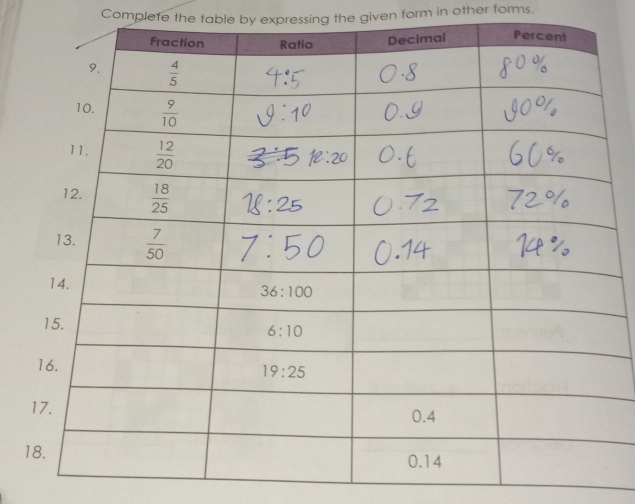 Complete the table by expressing the given form in other forms.
Fraction Ratio Decimal Percent
9. 4/5 4:5 0.8 80%
10. 9/10 9:10 0.9 90%
11. 12/20 3:5 12:20 0.6 60%
12. 18/25 18:25 0.72 72%
13. 7/50 7:50 0.14 14%
14. 36:100
15. 6:10
16. 19:25
17. 0.4
18. 0.14